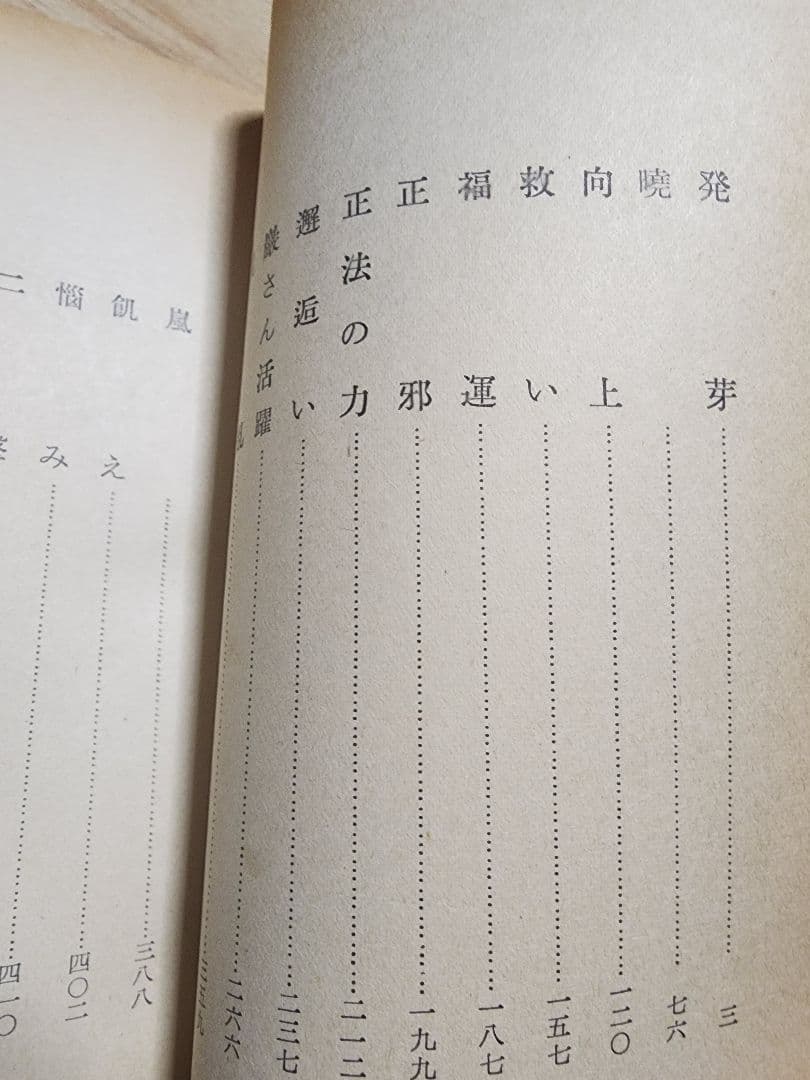 発芽……三
暁……七六
向上……一二〇
救い……一五七
福運……一八七
正邪……一九九
正法の力……二一二
邂逅い……二三七
巌さん活躍……二六六
嵐……三八八
飢え……四〇二
悩み……四一〇
二